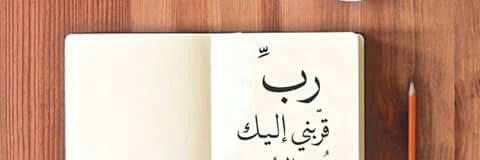 ربِّ
قرّبني إليك